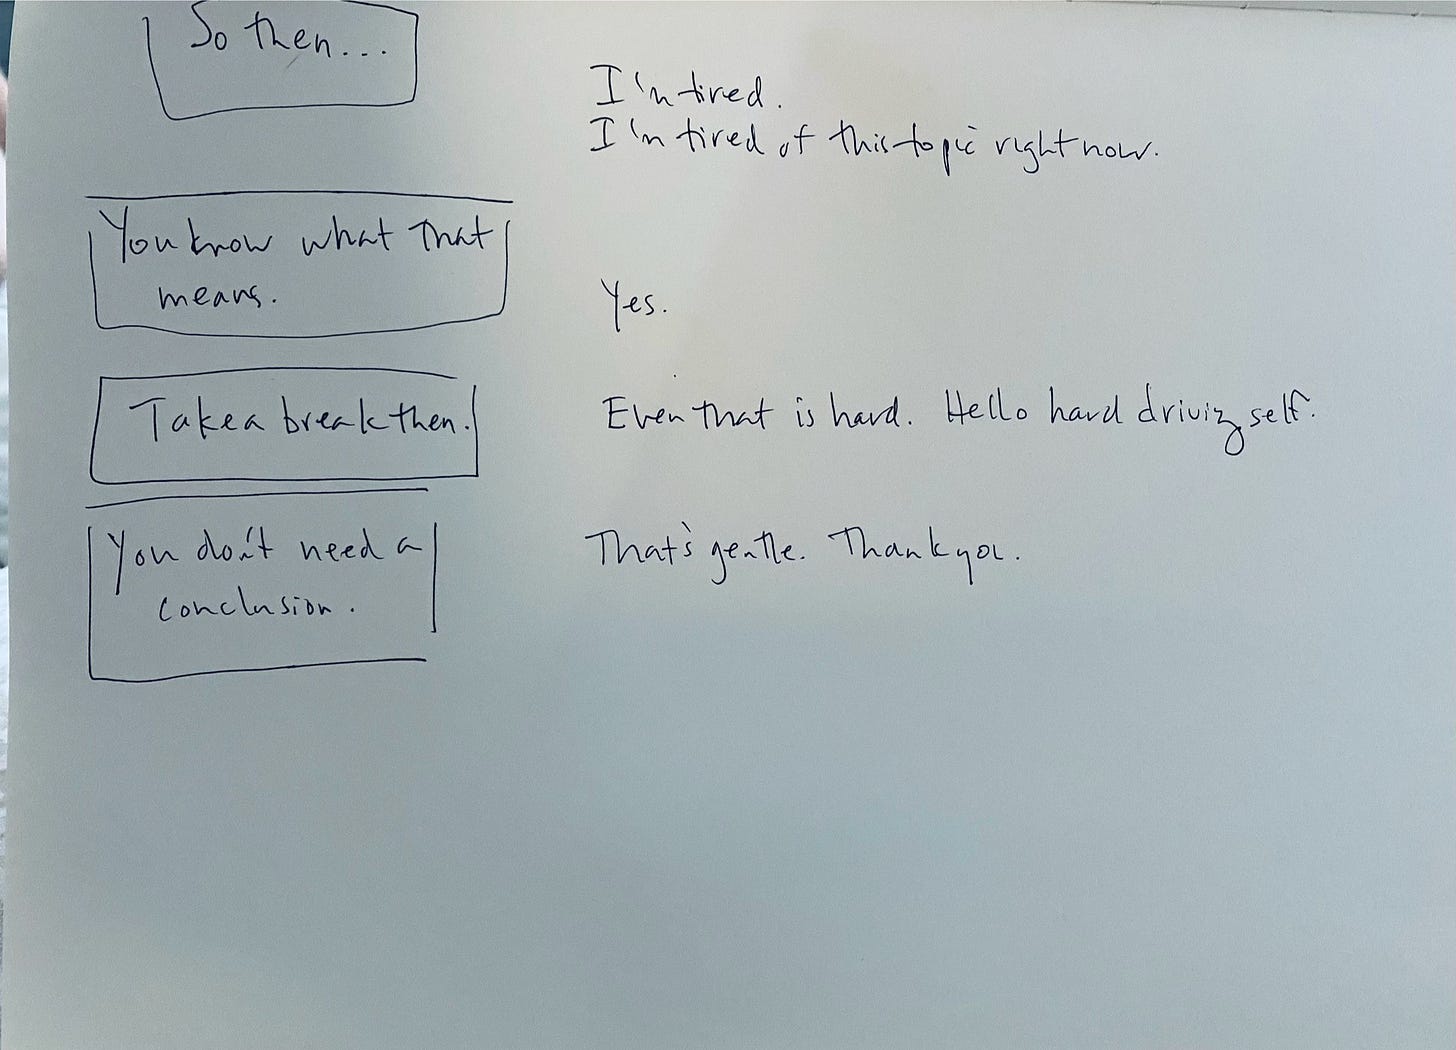 So then...
I'm tired.
I'm tired of this topic right now.
You know what that
means.
Yes.
Take a break then.
Even that is hard. Hello hard driving self.
You don't need a
conclusion.
That's gentle. Thank you.